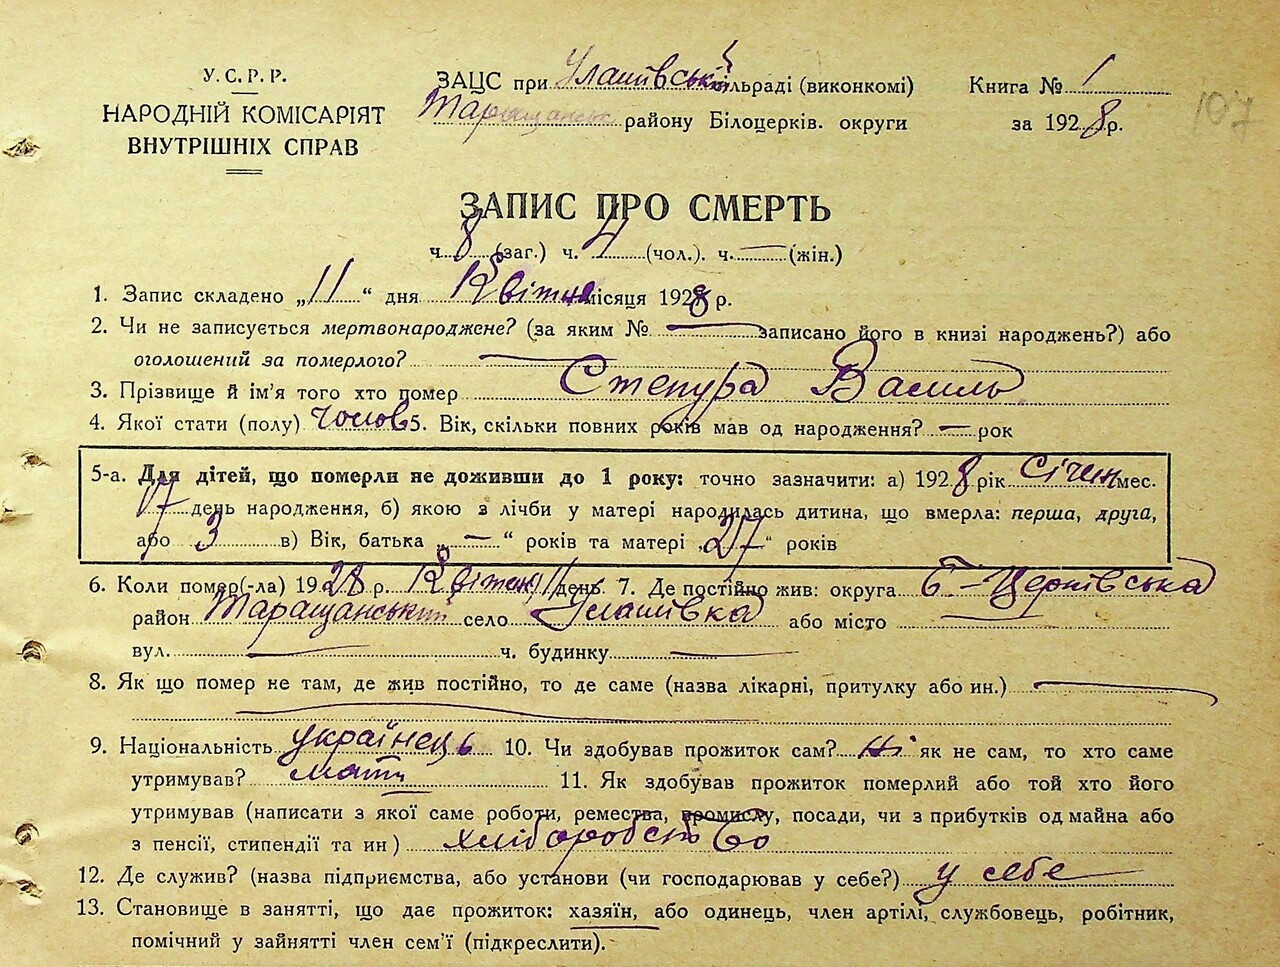 У.С.Р.Р.
НАРОДНІЙ КОМІСАРІЯТ
ВНУТРІШНІХ СПРАВ
ЗАЦС при Улашівській сільраді (виконкомі)
Таращанськ. району Білоцерків. округи
Книга № 1
за 1928 р.
107
ЗАПИС ПРО СМЕРТЬ
ч. 8 (заг.) ч. 4 (чол.). ч. — (жін.)
1. Запис складено „11“ дня Квітня місяця 1928 р.
2. Чи не записується мертвонароджене? (за яким № — записано його в книзі народжень?) або
оголошений за померлого? —
3. Прізвище й ім'я того хто помер Степура Василь
4. Якої стати (полу) чолов 5. Вік, скільки повних років мав од народження? — рок
5-а. Для дітей, що померли не доживши до 1 року: точно зазначити: а) 1928 рік Січень мес.
17 день народження, б) якою з лічби у матері народилась дитина, що вмерла: перша, друга,
або 3 в) Вік, батька „—“ років та матері „27“ років
6. Коли помер(-ла) 1928 р. Квітень 11 день 7. Де постійно жив: округа Б-Церківська
район Таращанський село Улашівка або місто —
вул. — ч. будинку —
8. Як що помер не там, де жив постійно, то де саме (назва лікарні, притулку або ин.) —
9. Національність українець 10. Чи здобував прожиток сам? Ні як не сам, то хто саме
утримував? мати 11. Як здобував прожиток померлий або той хто його
утримував (написати з якої саме роботи, ремества, промислу, посади, чи з прибутків од майна або
з пенсії, стипендії та ин ) хліборобство
12. Де служив? (назва підприємства, або установи (чи господарював у себе?) у себе
13. Становище в занятті, що дає прожиток: хазяїн, або одинець, член артілі, службовець, робітник,
помічний у зайнятті член сем'ї (підкреслити).